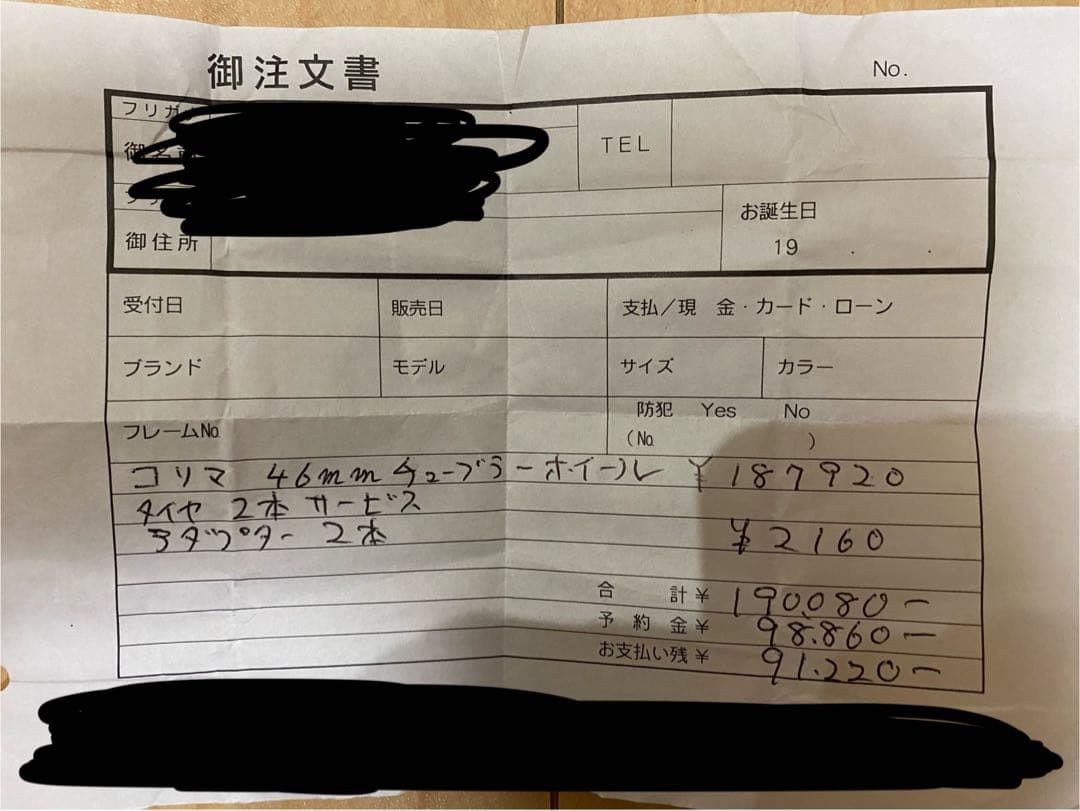 御注文書
No.
フリガ
御名 TEL
お誕生日
御住所 19 . .
受付日 販売日 支払/現 金・カード・ローン
ブランド モデル サイズ カラー
防犯 Yes No
フレームNo. (No. )
コリマ 46mmチューブラーホイール ¥187920
タイヤ 2本 サービス
アダプター 2本 ¥2160
合 計¥ 190.080-
予 約 金¥ 98.860-
お支払い残¥ 91.220-